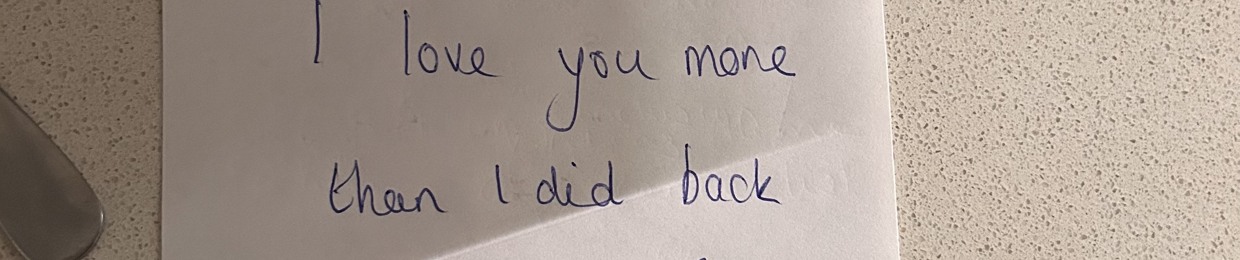 I love you more
than I did back